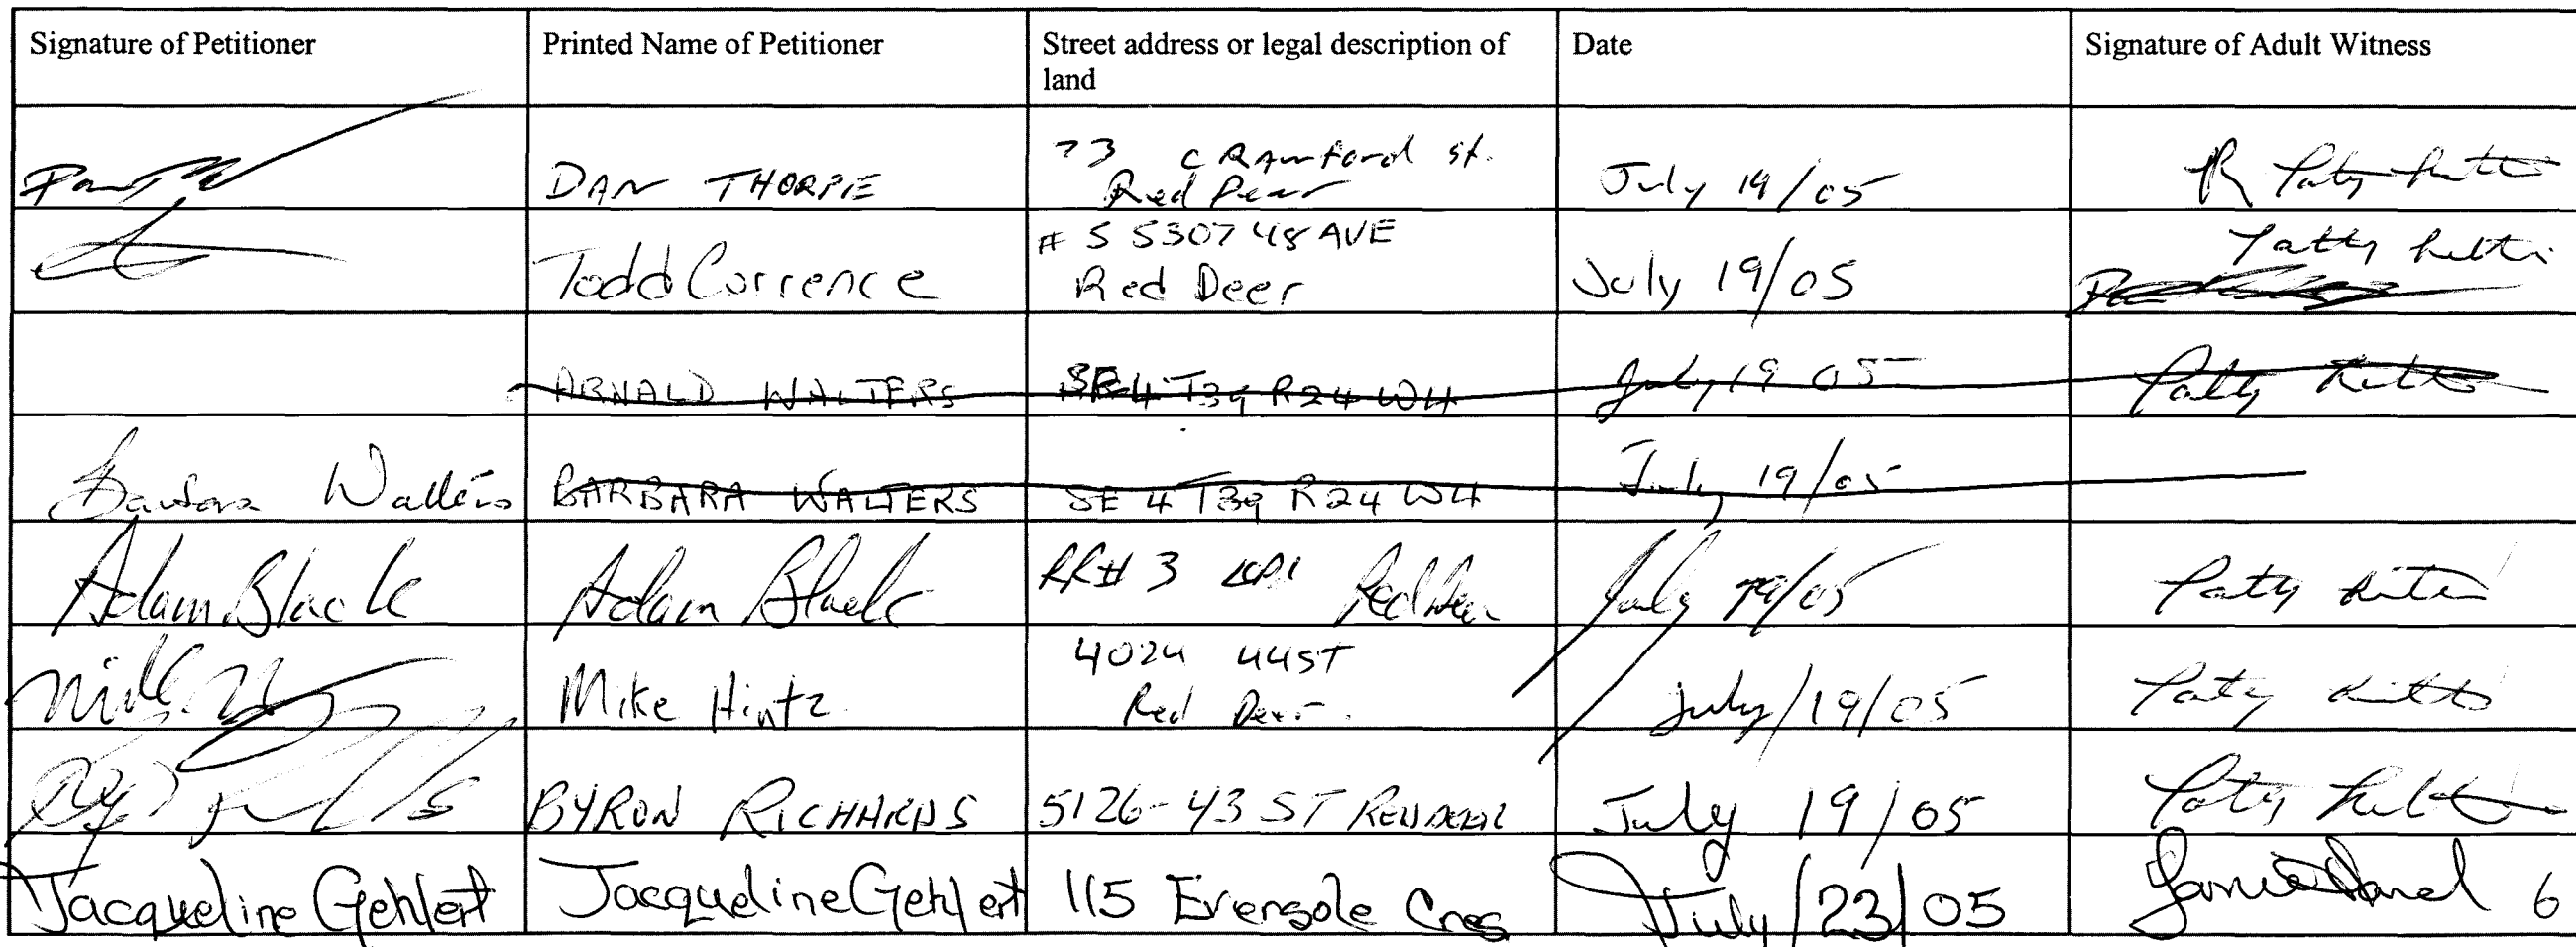 Signature of Petitioner Printed Name of Petitioner Street address or legal description of Date Signature of Adult Witness
land
DAN THORPE 73 CRAWford st. July 19/05
Red Deer
Todd Currence # 5 5307 48 AVE July 19/05 Patty
Red Deer
ARNALD WALTERS SE 4 T39 R24 W4 July 19 05 Patty
Barbara Walters BARBARA WALTERS SE 4 T39 R24 W4 July 19/05
Adam Black Adam Black RR# 3 Red Deer July 19/05 Patty
Mike Mike Hintz 4024 44ST July/19/05 Patty
Red Deer.
BYRON RICHARDS 5126-43 ST RED DEER July 19/05 Patty
Jacqueline Gehlert Jacqueline Gehlert 115 Evergole Cres July/23/05 6